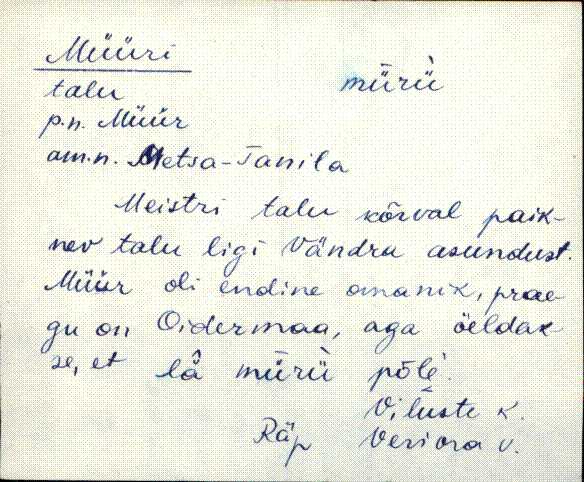 Müüri
mǖrǜ
talu
p.n. Müür
am.n. Metsa-Tanila
Meistri talu kõrval paik-
nev talu ligi Vändra asundust.
Müür oli endine omanik, prae-
gu on Oidermaa, aga öeldak-
se, et lǟ mǖrǜ põlè.
Viluste k.
Räp Veriora v.